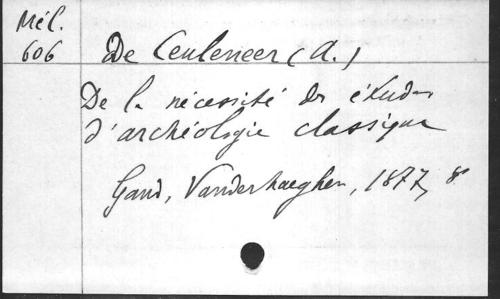 Mél.
606
De Ceuleneer (A.)
De la nécessité des études
d'archéologie classique
Gand, Vanderhaeghen, 1877, 8°